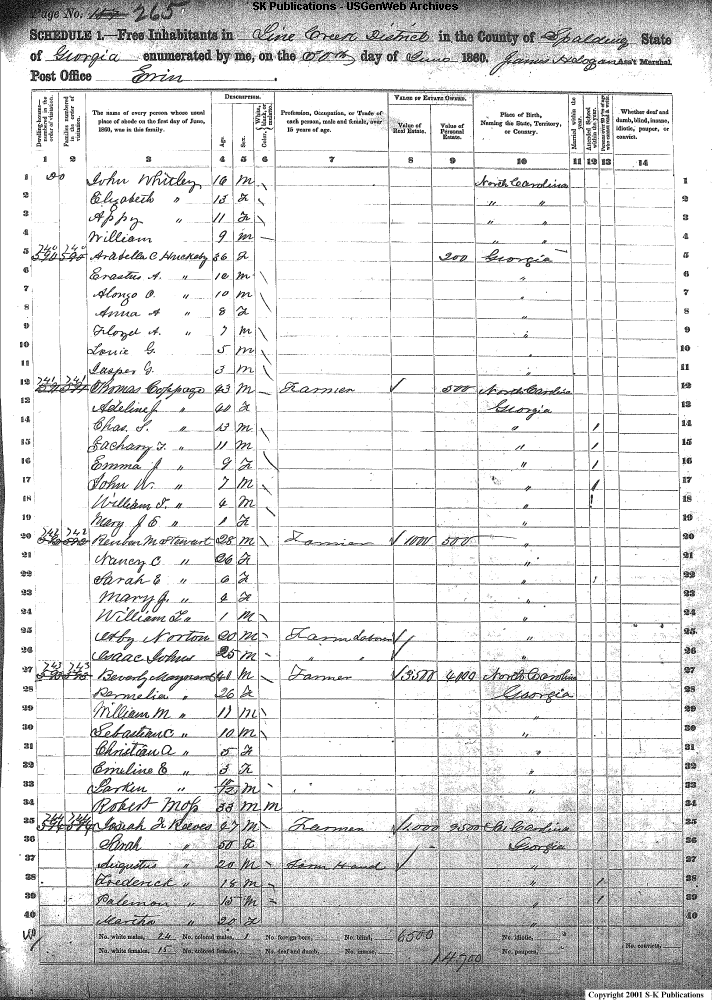 SK Publications - USGenWeb Archives
Page No. 265
SCHEDULE 1.—Free Inhabitants in Line Creek District in the County of Spalding State
of Georgia enumerated by me, on the 20th day of June 1860. Ass't Marshal.
Post Office Erin
DESCRIPTION. VALUE OF ESTATE OWNED.
Dwelling-houses—numbered in the order of visitation. Families numbered in the order of visitation. The name of every person whose usual place of abode on the first day of June, 1860, was in this family. Age. Sex. Color, Profession, Occupation, or Trade of each person, male and female, over 15 years of age. Value of Real Estate. Value of Personal Estate. Place of Birth, Naming the State, Territory, or Country. Married within the year. Attended School within the year. Whether deaf and dumb, blind, insane, idiotic, pauper, or convict.
1 2 3 4 5 6 7 8 9 10 11 12 13 14
1 John Whitley 16 M North Carolina 1
2 Elizabeth " 13 F " " 2
3 Appy " 11 F " " 3
4 William 9 M " " 4
5 740 740 Arabella C Huckaby 36 F 200 Georgia 5
6 Erastus A. " M " 6
7 Alonzo O. " 10 M " 7
8 Anna A " 8 F " 8
9 Floyd A. " 7 M " 9
10 Louie G. 5 M " 10
11 Jasper G. 3 M " 11
12 741 741 Thomas Coppage 43 M Farmer 500 North Carolina 12
13 Adeline J. " 40 F Georgia 13
14 Chas. S. " 13 M " 1 14
15 Zachary T. " 11 M " 1 15
16 Emma J " 9 F " 1 16
17 John W. " 7 M " 1 17
18 William T. " 4 M " 1 18
19 Mary J E " 1 F " 19
20 742 742 Reuben M Stewart 28 M Farmer 1000 500 " 20
21 Nancy C. " 26 F " 21
22 Sarah E " 6 F " 1 22
23 Mary J. " 4 F " 23
24 William F. " 1 M " 24
25 Norton 20 M Farm Laborer " 25
26 Isaac Johns 25 M " " " 26
27 743 743 Beverly Maynard 41 M Farmer 3500 4100 North Carolina 27
28 Permelia " 26 F Georgia 28
29 William M " 11 M " 29
30 Sebastian C " 10 M " 30
31 Christian A " 5 F " 31
32 Emeline E " 3 F " 32
33 Larken " M " 33
34 Robert 33 M M " 34
35 744 744 Josiah F Reeves 47 M Farmer 1,000 9500 So. Carolina 35
36 Sarah " 50 F Georgia 36
37 Augustus " 20 M Farm Hand " 37
38 Frederick " 18 M " 1 38
39 Palemon " 15 M " 1 39
40 Martha " 20 F " 40
No. white males, 24 No. colored males, 1 No. foreign born, No. blind, 6500 No. idiotic,
No. white females, 15 No. colored females, No. deaf and dumb, No. insane, 14,700 No. paupers, No. convicts,
Copyright 2001 S-K Publications